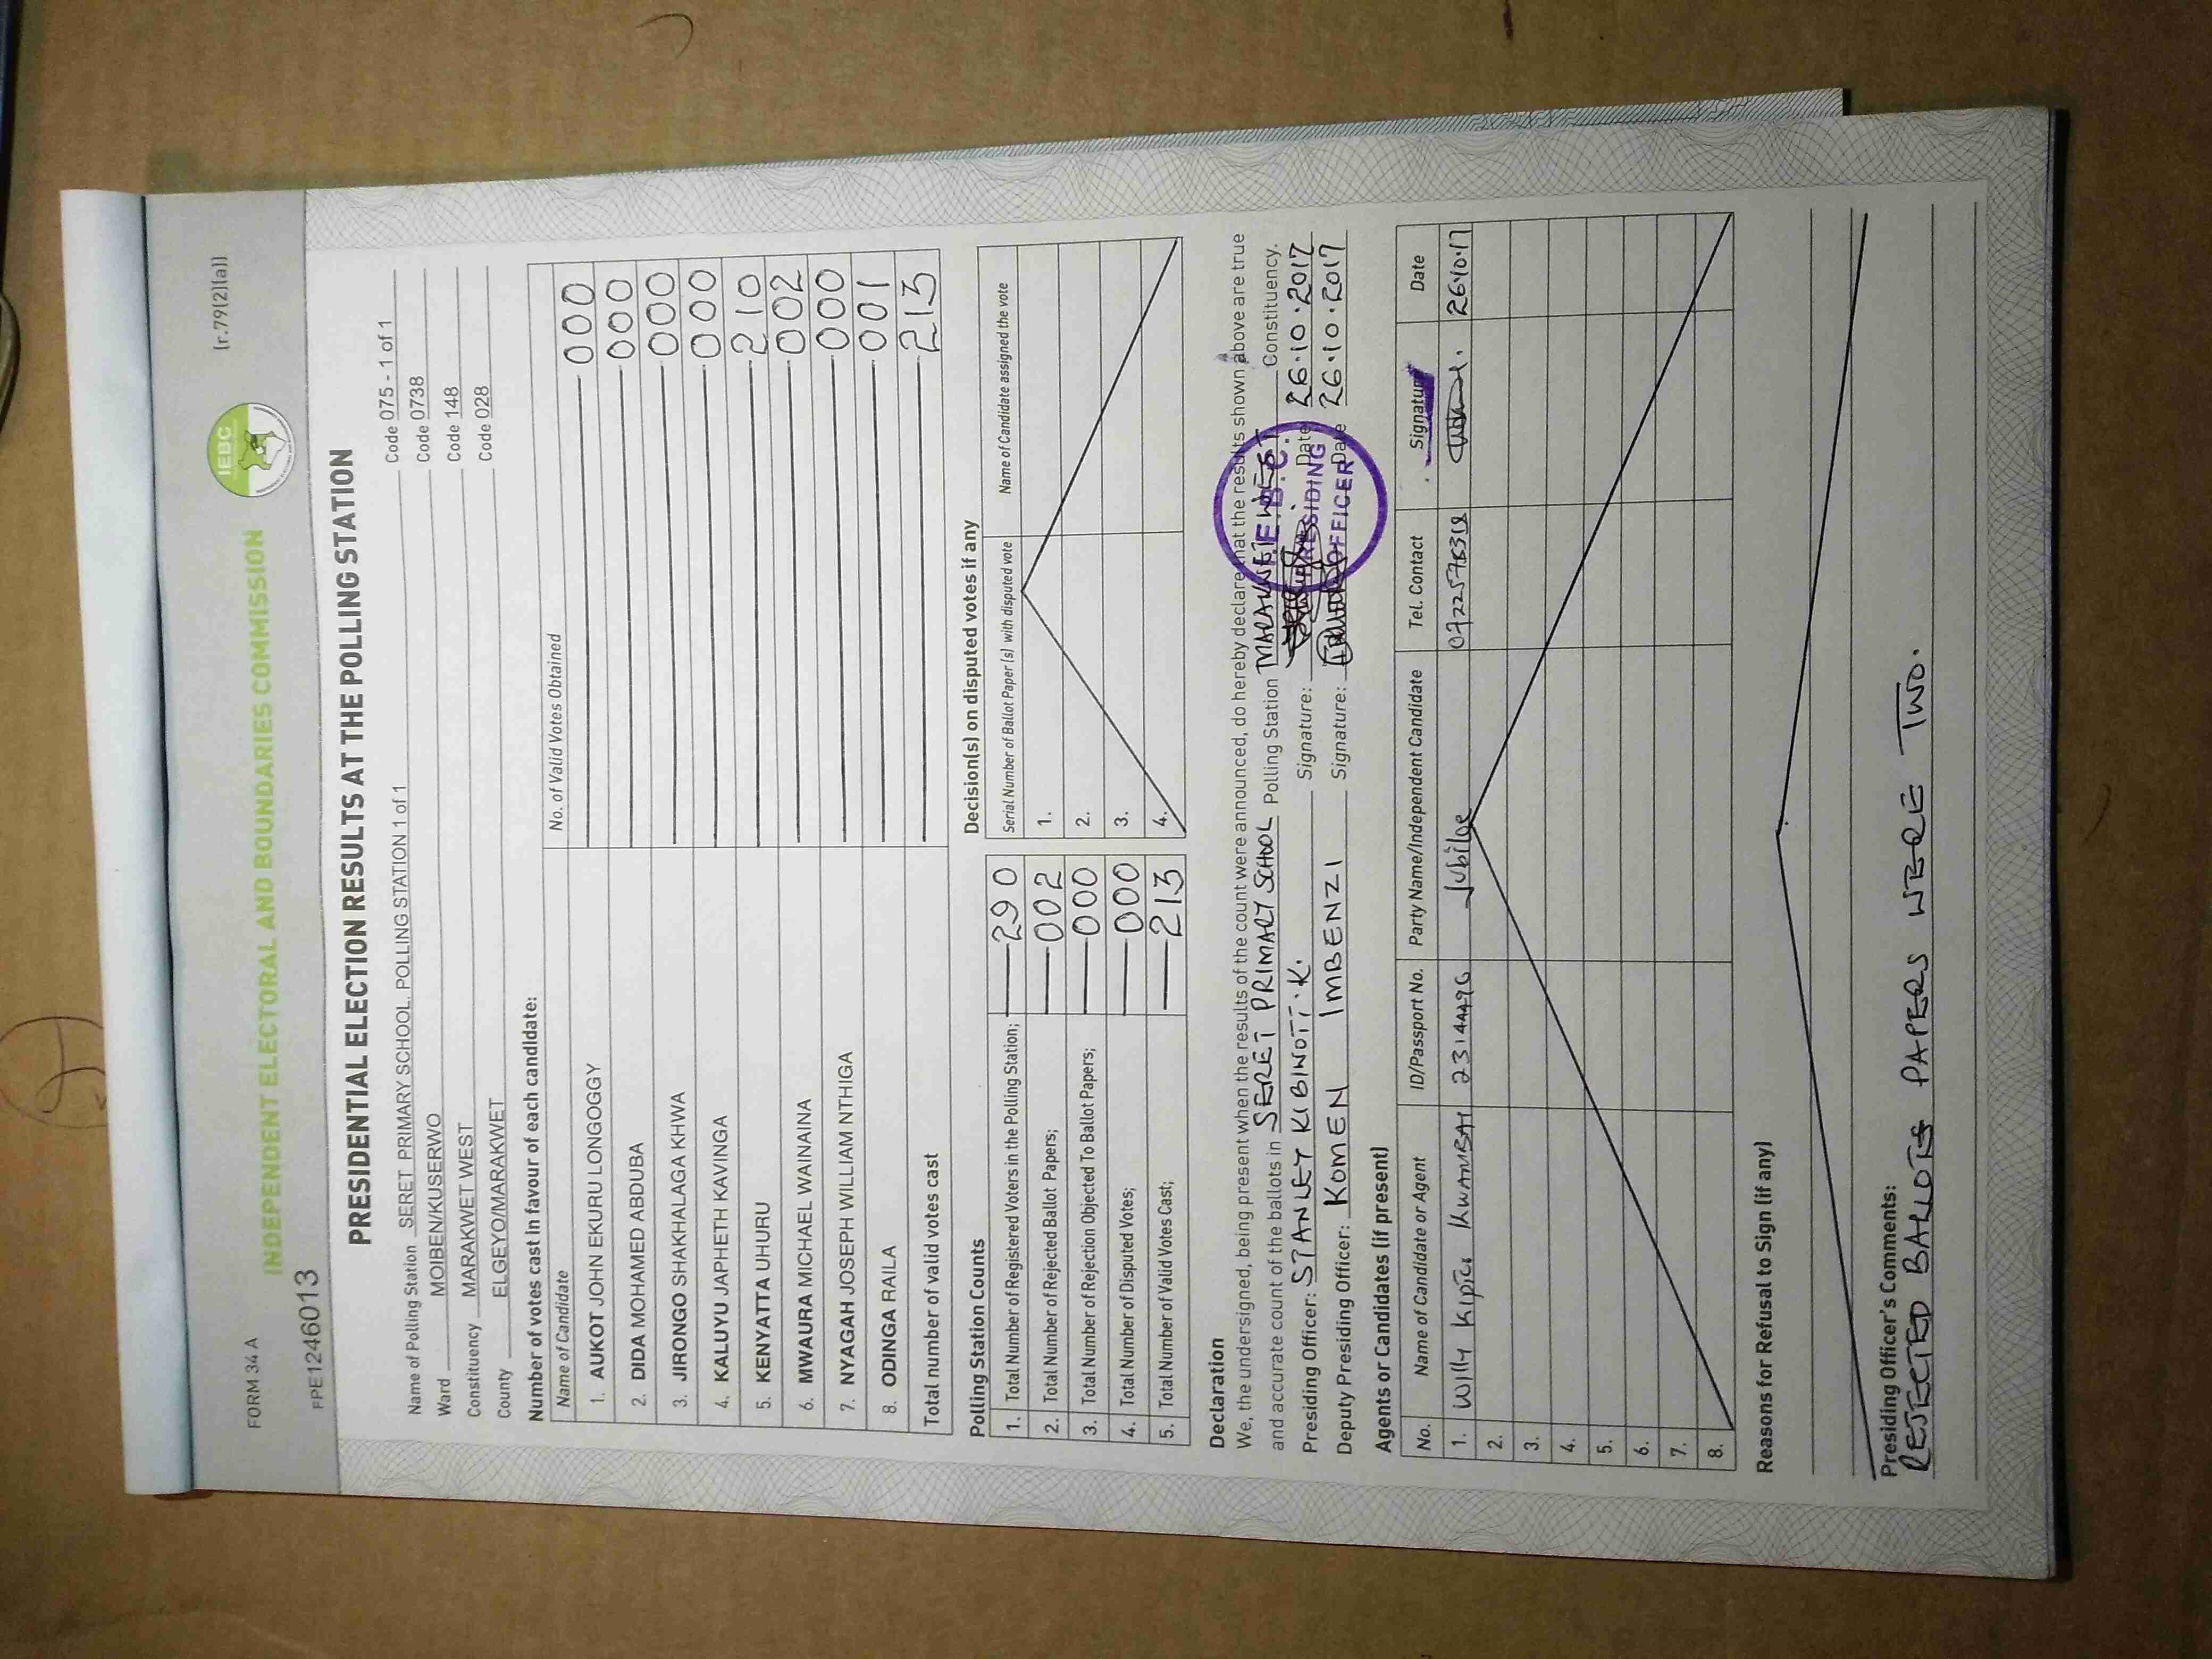 FORM 34 A
(r.79(2)(a))
INDEPENDENT ELECTORAL AND BOUNDARIES COMMISSION
IEBC
FPE1246013
PRESIDENTIAL ELECTION RESULTS AT THE POLLING STATION
Name of Polling Station SERET PRIMARY SCHOOL, POLLING STATION 1 of 1 Code 075 - 1 of 1
Ward MOIBEN/KUSERWO Code 0738
Constituency MARAKWET WEST Code 148
County ELGEYO/MARAKWET Code 028
Number of votes cast in favour of each candidate:
Name of Candidate No. of Valid Votes Obtained
1. AUKOT JOHN EKURU LONGOGGY 000
2. DIDA MOHAMED ABDUBA 000
3. JIRONGO SHAKHALAGA KHWA 000
4. KALUYU JAPHETH KAVINGA 000
5. KENYATTA UHURU 210
6. MWAURA MICHAEL WAINAINA 002
7. NYAGAH JOSEPH WILLIAM NTHIGA 000
8. ODINGA RAILA 001
Total number of valid votes cast 213
Polling Station Counts
1. Total Number of Registered Voters in the Polling Station; 290
2. Total Number of Rejected Ballot Papers; 002
3. Total Number of Rejection Objected To Ballot Papers; 000
4. Total Number of Disputed Votes; 000
5. Total Number of Valid Votes Cast; 213
Decision(s) on disputed votes if any
Serial Number of Ballot Paper (s) with disputed vote Name of Candidate assigned the vote
1.
2.
3.
4.
Declaration
We, the undersigned, being present when the results of the count were announced, do hereby declare that the results shown above are true
and accurate count of the ballots in SERET PRIMARY SCHOOL Polling Station MARAKWET WEST Constituency.
Presiding Officer: STANLEY KIBINOTT .K. Signature: Date 26.10.2017
Deputy Presiding Officer: KOMEN IMBENZI Signature: Date 26.10.2017
I.E.B.C.
PRESIDING
OFFICER
Agents or Candidates (if present)
No. Name of Candidate or Agent ID/Passport No. Party Name/Independent Candidate Tel. Contact Signature Date
1. Willy KipTco KWAMBAI 23144496 Jubilee 26.10.17
2.
3.
4.
5.
6.
7.
8.
Reasons for Refusal to Sign (if any)
Presiding Officer's Comments:
REJECTED BALLOTS PAPERS WERE TWO.